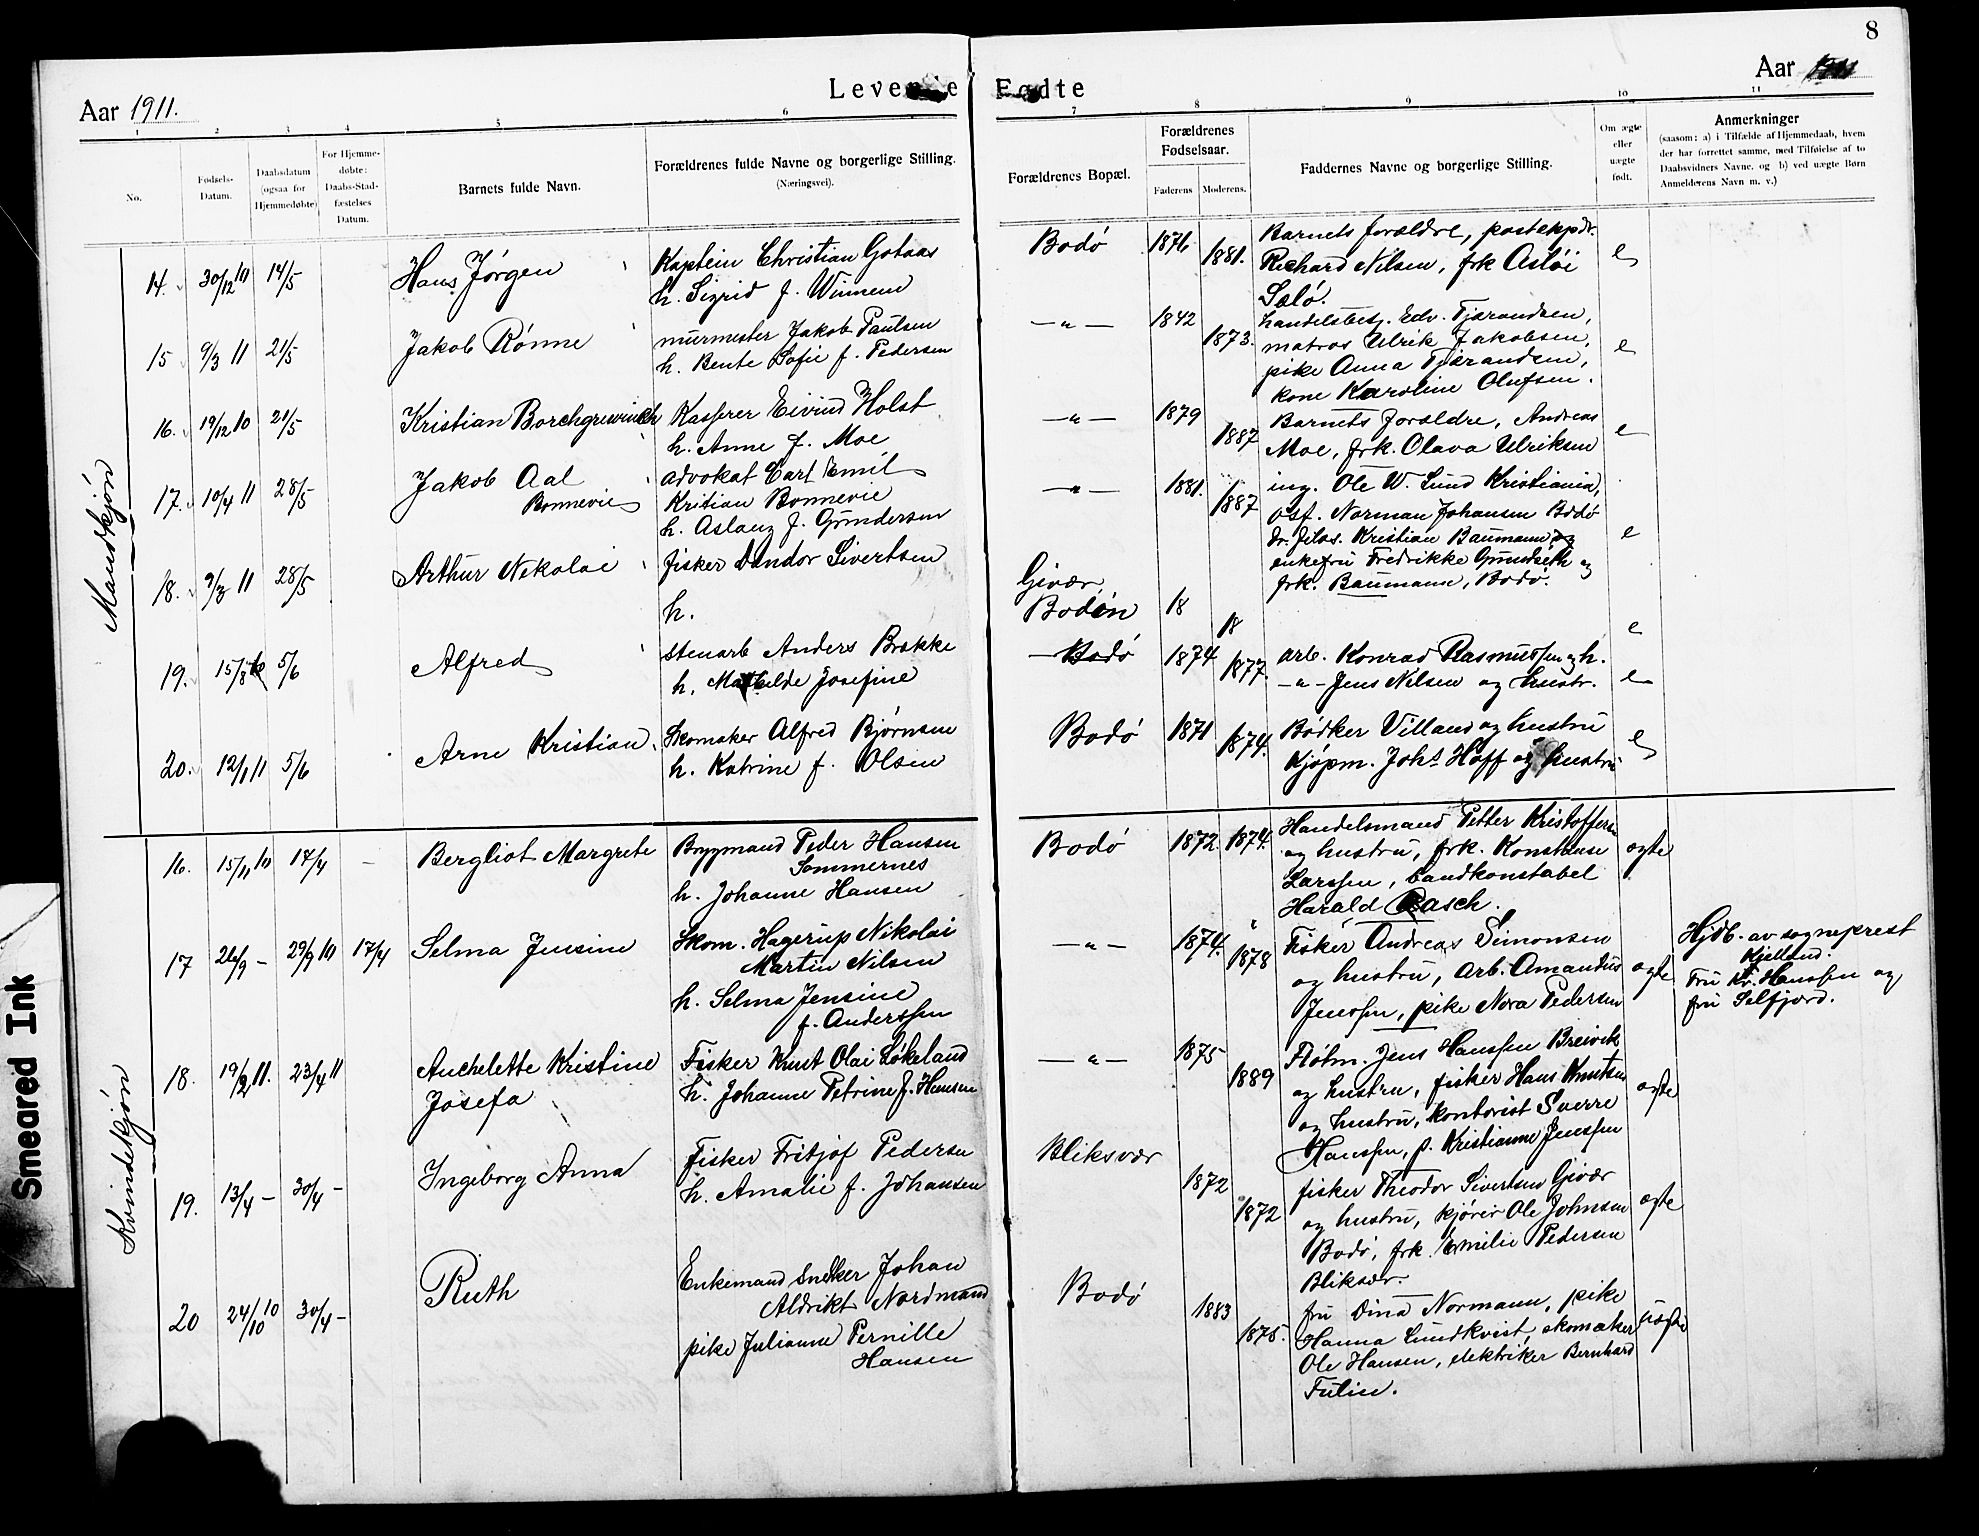 8
Levende Fødte
Aar 1911.
Aar
1 2 3 4 5 6 7 8 9 10 11
No.
Fødsels-
Datum.
Daabsdatum
(ogsaa for
Hjemmedøbte)
For Hjemme-
døbte:
Daabs-Stad-
fæstelses
Datum.
Barnets fulde Navn.
Forældrenes fulde Navne og borgerlige Stilling.
(Næringsvei).
Forældrenes Bopæl.
Forældrenes
Fødselsaar.
Faderens
Moderens.
Faddernes Navne og borgerlige Stilling.
Om ægte
eller
uægte
født.
Anmerkninger
(saasom: a) i Tilfælde af Hjemmedaab, hvem
der har forrettet samme, med Tilføielse af to
Daabsvidners Navne, og b) ved uægte Børn
Anmelderens Navn m. v.)
Mandkjøn
14. 30/12 10 14/5
Hans Jørgen
Kaptein Christian Gotaas
h. Sigrid f. Winnem
Bodø 1876 1881.
Barnets forældre, postexpdr.
Richard Nilsen, frk Asløi
Salø.
e
15 9/3 11 21/5
Jakob Rønne
murmester Jakob Paulsen
h. Bente Sofie f. Pedersen
—„— 1842 1873.
handelsbest. Edv. Tjærandsen,
matros Ulrik Jakobsen,
pike Anna Tjærandsen,
kone Karoline Olufsen.
e
16. 19/12 10 21/5
Kristian Borchgrewinck
Kasserer Eivind Holst
h. Anne f. Moe
—„— 1879 1887
Barnets forældre, Andreas
Moe, frk. Olava Ulriksen
e
17. 10/4 11 28/5
Jakob Aal
Bonnevie
advokat Carl Emil
Kritian Bonnevie
h. Aslaug f. Gundersen
—„— 1881. 1887
ing. Ole W. Lund Kristiania,
Norman Johansen Bodø
Kristian Baumann og
enkefru Fredrikke Grundseth og
frk. Baumann, Bodø.
e
18. 9/3 11 28/5
Arthur Nikolai
fisker Sivertsen
h.
Givær,
Bodin
18 18
e
19. 15/8 10 5/6
Alfred
stenarb Anders Brække
h. Mathilde Josefine
Bodø 1874 1877.
arb. Konrad Rasmussen og h.
—„— Jens Nilsen og hustr.
e
20. 12/1 11 5/6
Arne Kristian
Skomaker Alfred Bjørnsen
h. Katrine f. Olsen
Bodø 1871 1874.
Bødker Villand og hustru
Kjøpm. Johs Hoff og hustru
e
Kvindekjøn
16. 15/11 10 17/4 —
Bergliot Margrete
Brygmand Peder Hansen
Sommernes
h. Johanne Hansen
Bodø 1872 1874.
Handelsmand Petter Kristoffersen
og hustru, frk. Konstanse
Larssen, baandkonstabel
Harald Rasch.
ægte
17 26/9 — 29/9 10 17/4
Selma Jensine
Skom. Hagerup Nikolai
Martin Nilsen
h. Selma Jensine
f. Anderssen
—„— 1874. 1878
Fisker Andreas Simonsen
og hustru, Arb. Amandus
Jenssen, pike Nora Pedersen
ægte
Hjdb. av sogneprest
Kjelland.
Fru Kr. Hanssen og
fru Selfjord.
18. 19/2 11. 23/4 11
Anchelette Kristine
Josefa
Fisker Knut Olai Løkeland
h. Johanne Petrine f. Hansen
—„— 1875 1889
Fløtm. Jens Hanssen Breivik
og hustru, fisker Hans Knutsen
og hustru, kontorist Sverre
Hanssen, p. Kristianne Jenssen
ægte
19. 13/4 — 30/4 —
Ingeborg Anna
Fisker Fritjof Pedersen
h. Amalie f. Johansen
Bliksvær
1872 1872
fisker Theodor Sivertsen Givær
og hustru, kjører Ole Johnsen
Bodø, frk. Emilie Pedersen
Bliksvær.
ægte
20 24/10 10 30/4 —
Ruth
Enkemand snekker Johan
Aldrikt Nordmand
pike Julianne Pernille
Hansen
Bodø
1883 1875.
fru Dina Normann, pike
Hanna Lundkvist, skomaker
Ole Hansen, elektriker Bernhard
Fulin.
uægte
Smeared Ink